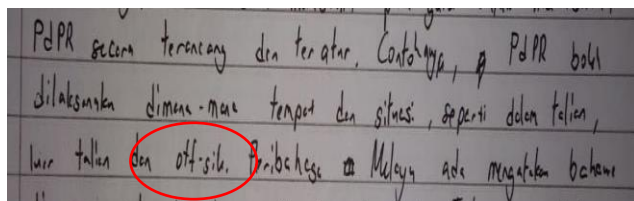 PdPR secara terancang dan teratur. Contohnya, PdPR boleh
dilaksanakan dimana-mana tempat dan situasi, seperti dalam talian,
luar talian dan off-site. Peribahasa Melayu ada mengatakan bahawa